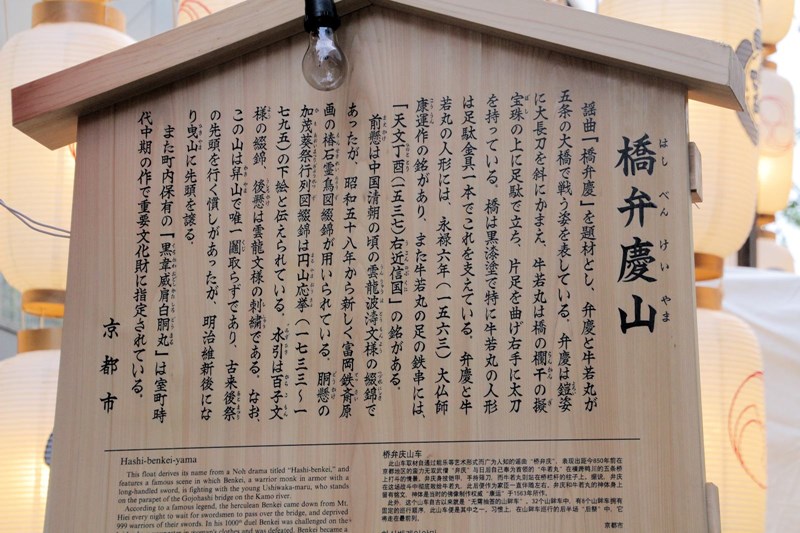 橋弁慶山
はしべんけいやま
謡曲「橋弁慶」を題材とし、弁慶と牛若丸が
五条の大橋で戦う姿を表している。弁慶は鎧姿
に大長刀を斜にかまえ、牛若丸は橋の欄干の擬
宝珠の上に足駄で立ち、片足を曲げ右手に太刀
を持っている。橋は黒漆塗で特に牛若丸の人形
は足駄金具一本でこれを支えている。弁慶と牛
若丸の人形には、永禄六年(一五六三)大仏師
康運作の銘があり、また牛若丸の足の鉄串には、
「天文丁酉(一五三七)右近信国」の銘がある。
前懸は中国清朝の頃の雲龍波濤文様の綴錦で
あったが、昭和五十八年から新しく富岡鉄斎原
画の椿石霊鳥図綴錦が用いられている。胴懸の
加茂葵祭行列図綴錦は円山応挙(一七三三〜一
七九五)の下絵と伝えられている。水引は百子文
様の綴錦、後懸は雲龍文様の刺繍である。なお、
この山は舁山で唯一鬮取らずであり、古来後祭
の先頭を行く慣しがあったが、明治維新後にな
り曳山に先頭を譲る。
また町内保有の「黒韋威肩白胴丸」は室町時
代中期の作で重要文化財に指定されている。
京都市
Hashi-benkei-yama
This float derives its name from a Noh drama titled "Hashi-benkei," and
features a famous scene in which Benkei, a warrior monk in armor with a
long-handled sword, is fighting with the young Ushiwaka-maru, who stands
on the parapet of the Gojohashi bridge on the Kamo river.
According to a famous legend, the herculean Benkei came down from Mt.
Hiei every night to wait for swordsmen to pass over the bridge, and deprived
999 warriors of their swords. In his 1000th duel Benkei was challenged on the
桥弁庆山车
京都市